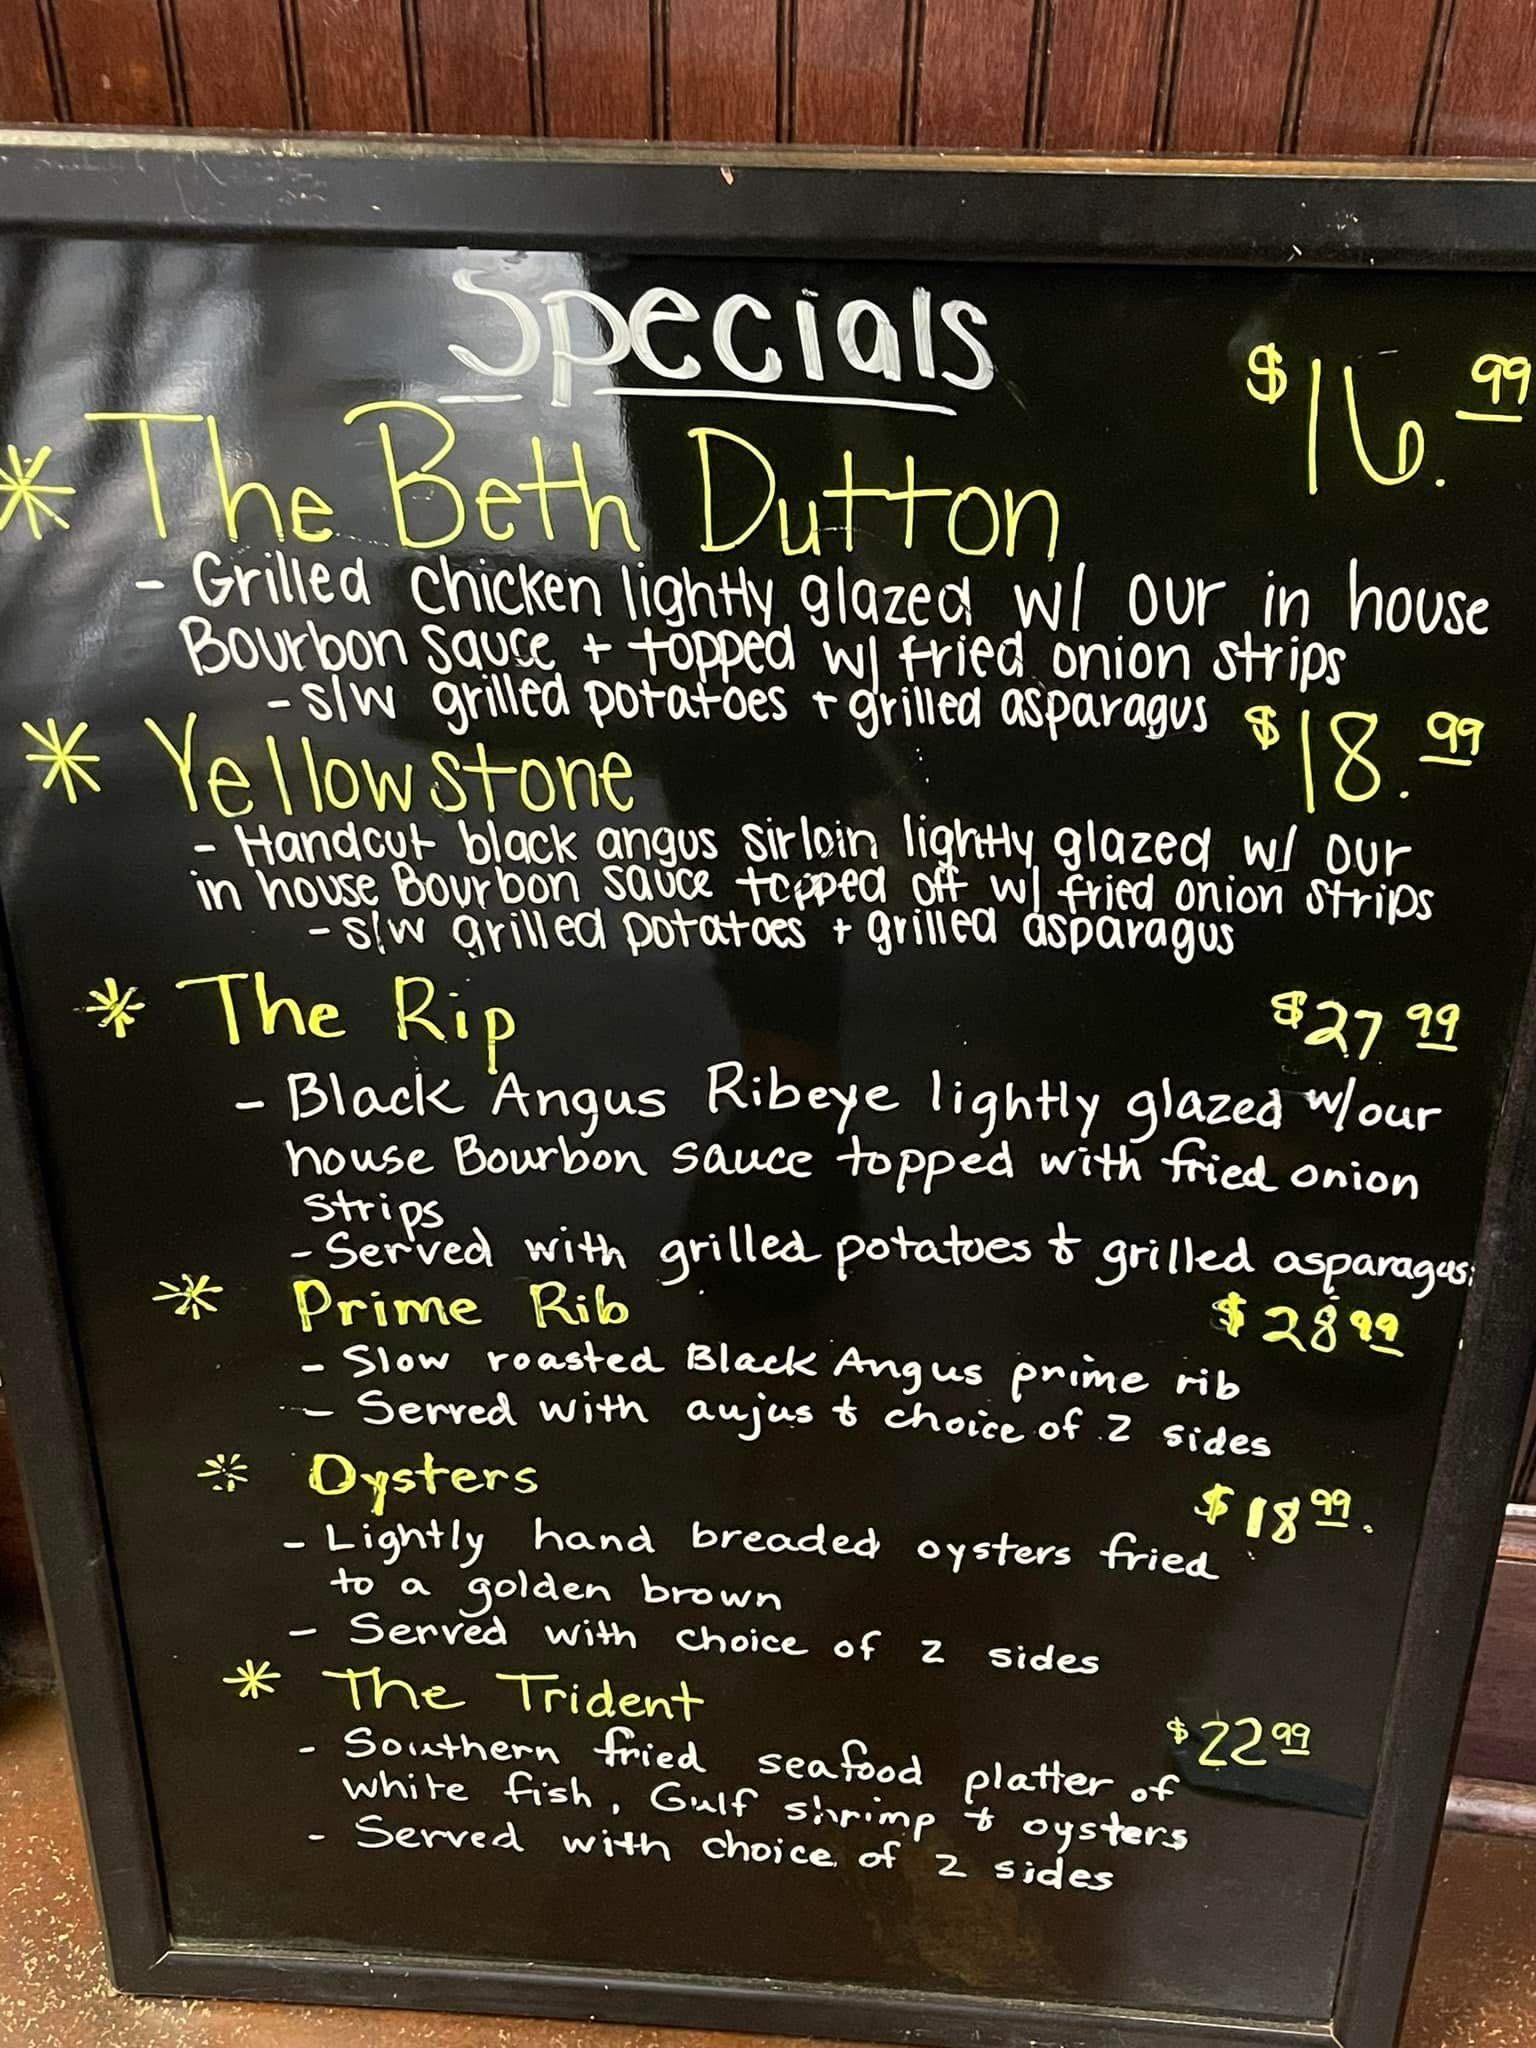 Specials
* The Beth Dutton $16.99
- Grilled chicken lightly glazed w/ our in house
Bourbon sauce + topped w/ fried onion strips
- s/w grilled potatoes + grilled asparagus
* Yellowstone $18.99
- Handcut black angus sirloin lightly glazed w/ our
in house Bourbon sauce topped off w/ fried onion strips
- s/w grilled potatoes + grilled asparagus
* The Rip $27.99
- Black Angus Ribeye lightly glazed w/our
house Bourbon sauce topped with fried onion
strips
- Served with grilled potatoes & grilled asparagus.
* Prime Rib $28 99
- Slow roasted Black Angus prime rib
- Served with aujus & choice of 2 sides
* Oysters $18 99.
- Lightly hand breaded oysters fried
to a golden brown
- Served with choice of 2 sides
* The Trident $22 99
- Southern fried seafood platter of
white fish, Gulf shrimp & oysters
- Served with choice of 2 sides